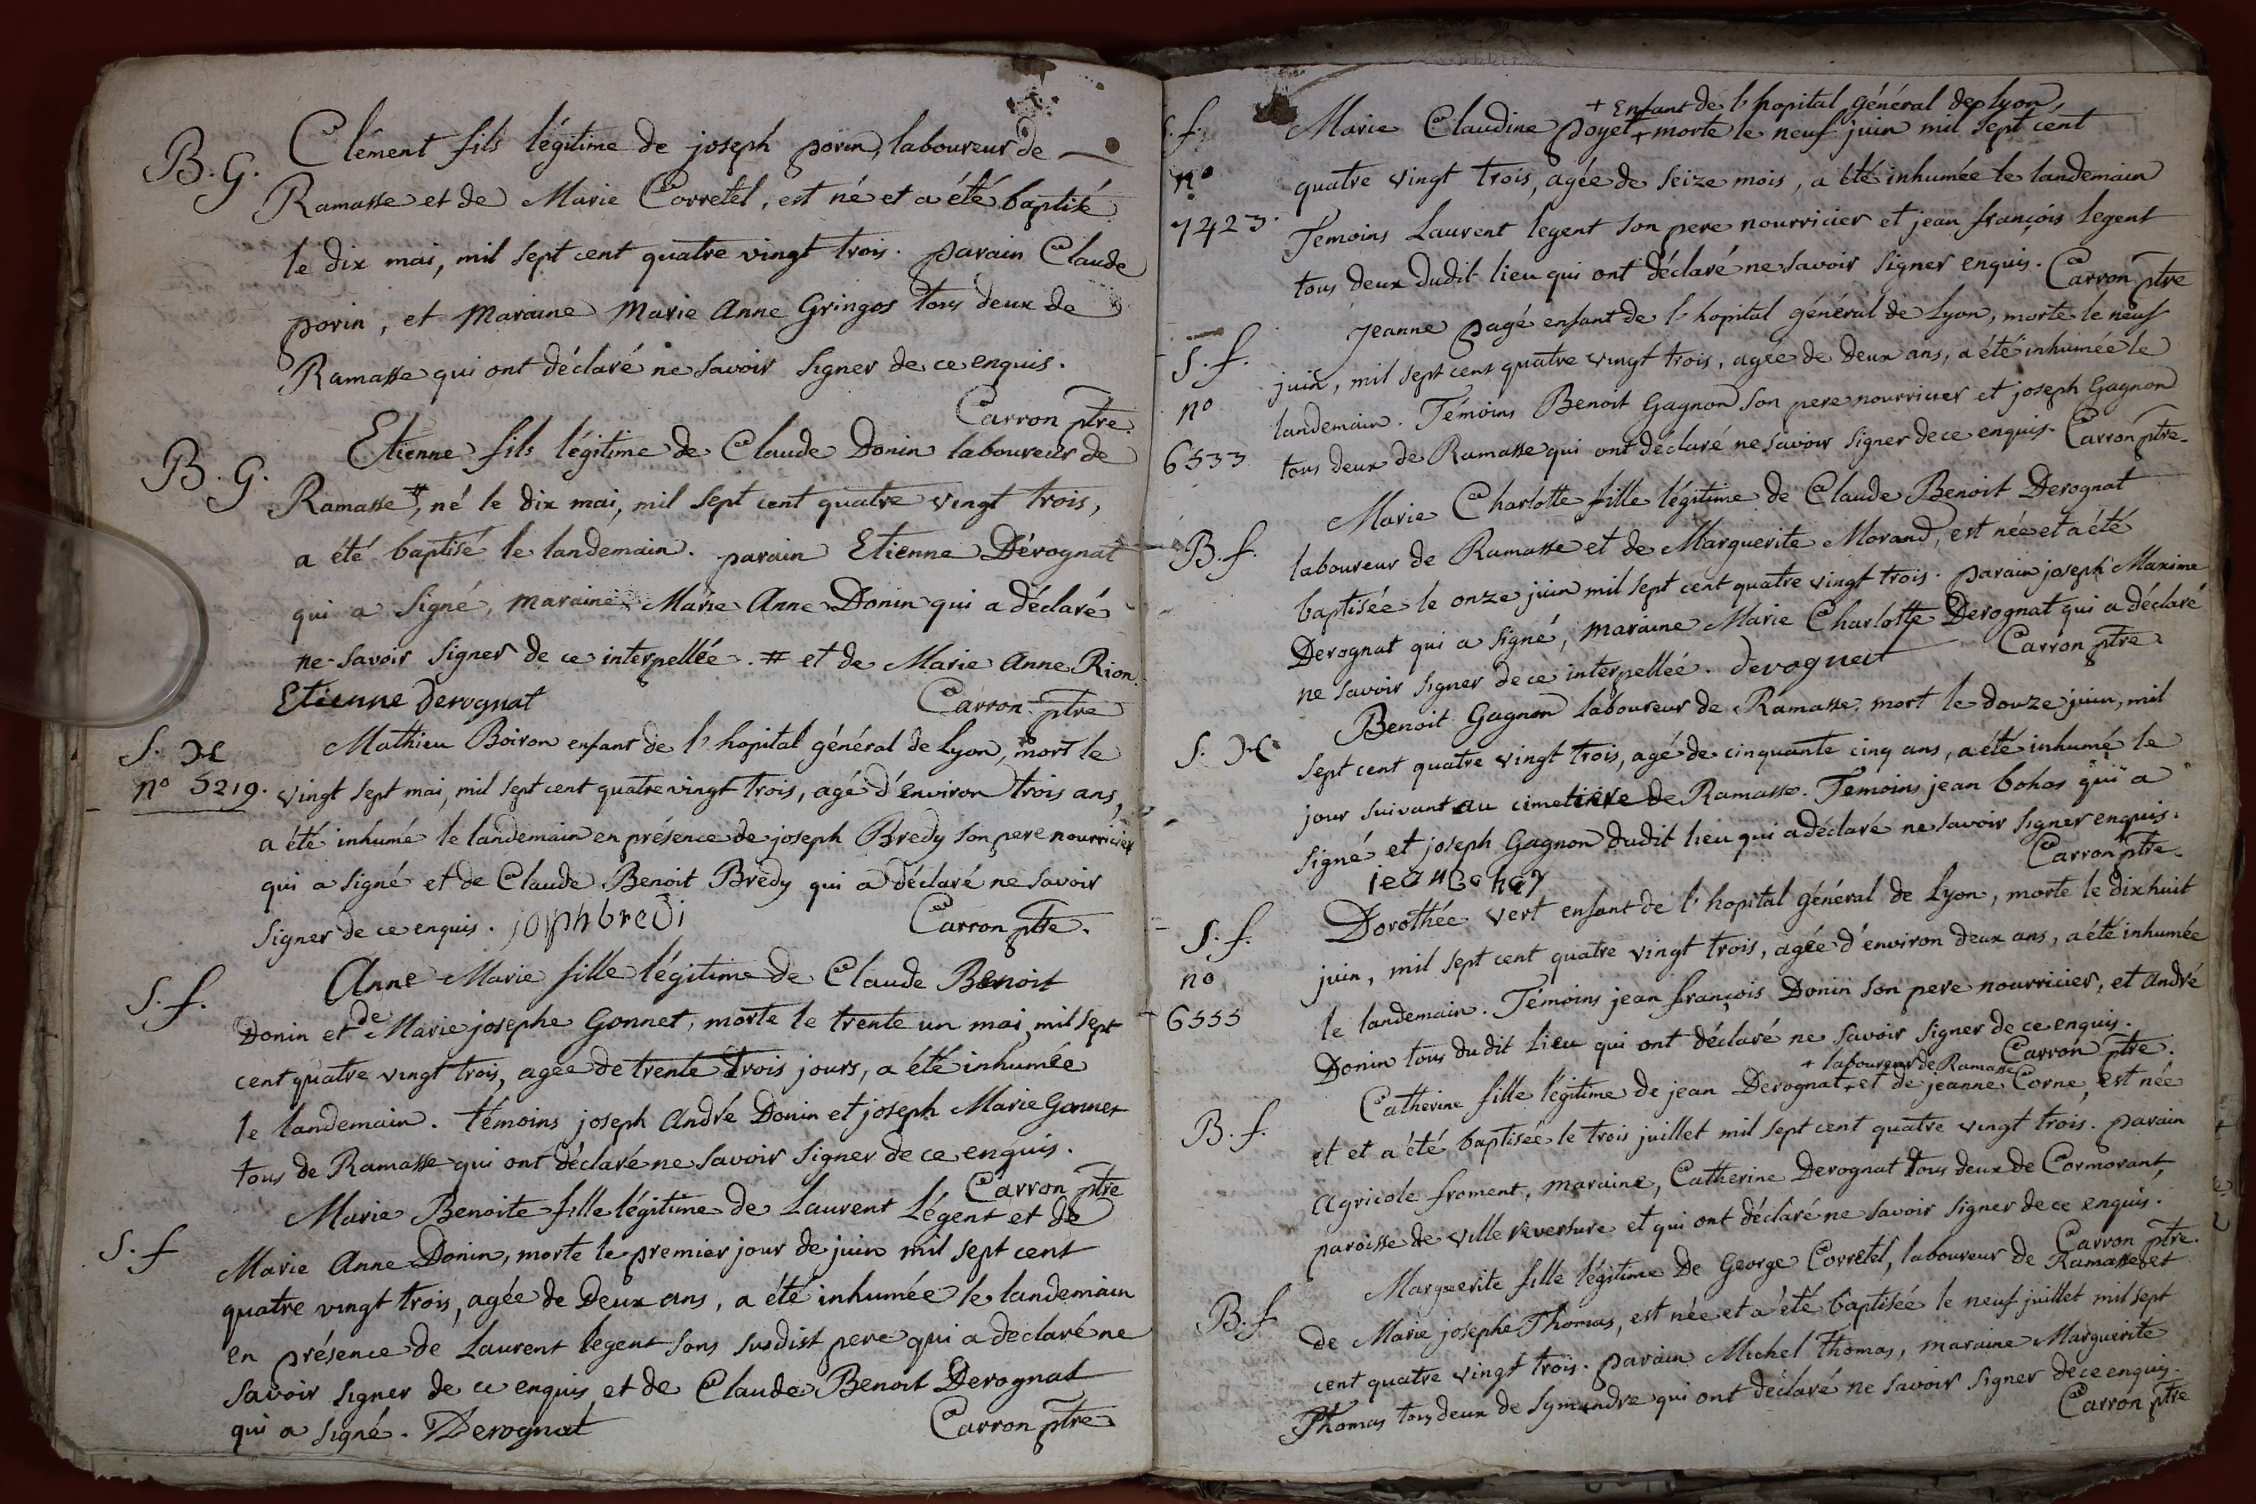 B. G. Clément fils légitime de joseph porin, laboureur de
Ramasse et de Marie Corretel, est né et a été baptisé
le dix mai, mil sept cent quatre vingt trois. parain Claude
porin, et maraine Marie Anne Gringos tous deux de
Ramasse qui ont déclaré ne savoir signer de ce enquis.
Carron ptre.
B. G. Etienne fils légitime de Claude Donin laboureur de
Ramasse #, né le dix mai, mil sept cent quatre vingt trois,
a été baptisé le landemain. parain Etienne Dérognat
qui a signé, maraine Marie Anne Donin qui a déclaré
ne savoir signer de ce interpellée. # et de Marie Anne Rion.
Etienne derognat Carron ptre
S. H Mathieu Boiron enfant de l'hopital général de Lyon, mort le
n° 5219. vingt sept mai, mil sept cent quatre vingt trois, agé d'environ trois ans,
a été inhumé le landemain en présence de joseph Bredy son pere nourricier
qui a signé et de Claude Benoit Bredy qui a déclaré ne savoir
signer de ce enquis. josphbredi Carron ptre.
S. f. Anne Marie fille légitime de Claude Benoit
Donin et de Marie josephe Gonnet, morte le trente un mai, mil sept
cent quatre vingt trois, agée de trente trois jours, a été inhumée
le landemain. témoins joseph André Donin et joseph Marie Gonnet
tous de Ramasse qui ont déclaré ne savoir signer de ce enquis.
Carron ptre
S. f Marie Benoite fille légitime de Laurent Légent et de
Marie Anne Donin, morte le premier jour de juin mil sept cent
quatre vingt trois, agée de deux ans, a été inhumée le landemain
en présence de Laurent legent sons susdist pere qui a declaré ne
savoir signer de ce enquis et de Claude Benoit Derognat
qui a signé. Derognat Carron ptre
+ Enfant de l'hopital général de Lyon,
S. f. Marie Claudine poyet + morte le neuf juin mil sept cent
n° quatre vingt trois, agée de seize mois, a été inhumée le landemain
7423. Temoins Laurent legent son pere nourricier et jean françois legent
tous deux dudit lieu qui ont déclaré ne savoir signer enquis. Carron ptre
S. f. jeanne pagé enfant de l'hopital général de Lyon, morte le neuf
juin, mil sept cent quatre vingt trois, agée de deux ans, a été inhumée le
n° landemain. Témoins Benoit Gagnon son pere nourricier et joseph Gagnon
6533 tous deux de Ramasse qui ont déclaré ne savoir signer de ce enquis. Carron ptre.
Marie Charlotte fille légitime de Claude Benoit Derognat
B. f. laboureur de Ramasse et de Marguerite Morand, est née et a été
baptisée le onze juin mil sept cent quatre vingt trois. parain joseph Maxime
Derognat qui a signé, maraine Marie Charlotte Derognat qui a déclaré
ne savoir signer de ce interpellée. derognat Carron ptre.
Benoit Gagnon laboureur de Ramasse, mort le douze juin, mil
S. H sept cent quatre vingt trois, agé de cinquante cinq ans, a été inhumé le
jour suivant au cimetiere de Ramasse. Temoins jean bohas qui a
signé et joseph Gagnon dudit lieu qui a déclaré ne savoir signer enquis.
jean Bohay Carron ptre.
S. f. Dorothée vert enfant de l'hopital général de Lyon, morte le dix huit
n° juin, mil sept cent quatre vingt trois, agée d'environ deux ans, a été inhumée
6555 le landemain. Témoins jean françois Donin son pere nourricier, et andré
Donin tous dudit lieu qui ont déclaré ne savoir signer de ce enquis.
+ laboureur de Ramasse Carron ptre.
Catherine fille légitime de jean Derognat + et de jeanne Corne, est née
B. f. et et a été baptisée le trois juillet mil sept cent quatre vingt trois. parain
agricole froment, maraine, Catherine Derognat tous deux de Cormorant,
paroisse de ville reversure et qui ont déclaré ne savoir signer de ce enquis.
Carron ptre.
Marguerite fille légitime De George Corretel, laboureur de Ramasse et
B. f de Marie josephe Thomas, est née et a été baptisée le neuf juillet mil sept
cent quatre vingt trois. parain Michel Thomas, maraine Marguerite
Thomas tous deux de Symandre qui ont déclaré ne savoir signer de ce enquis.
Carron ptre